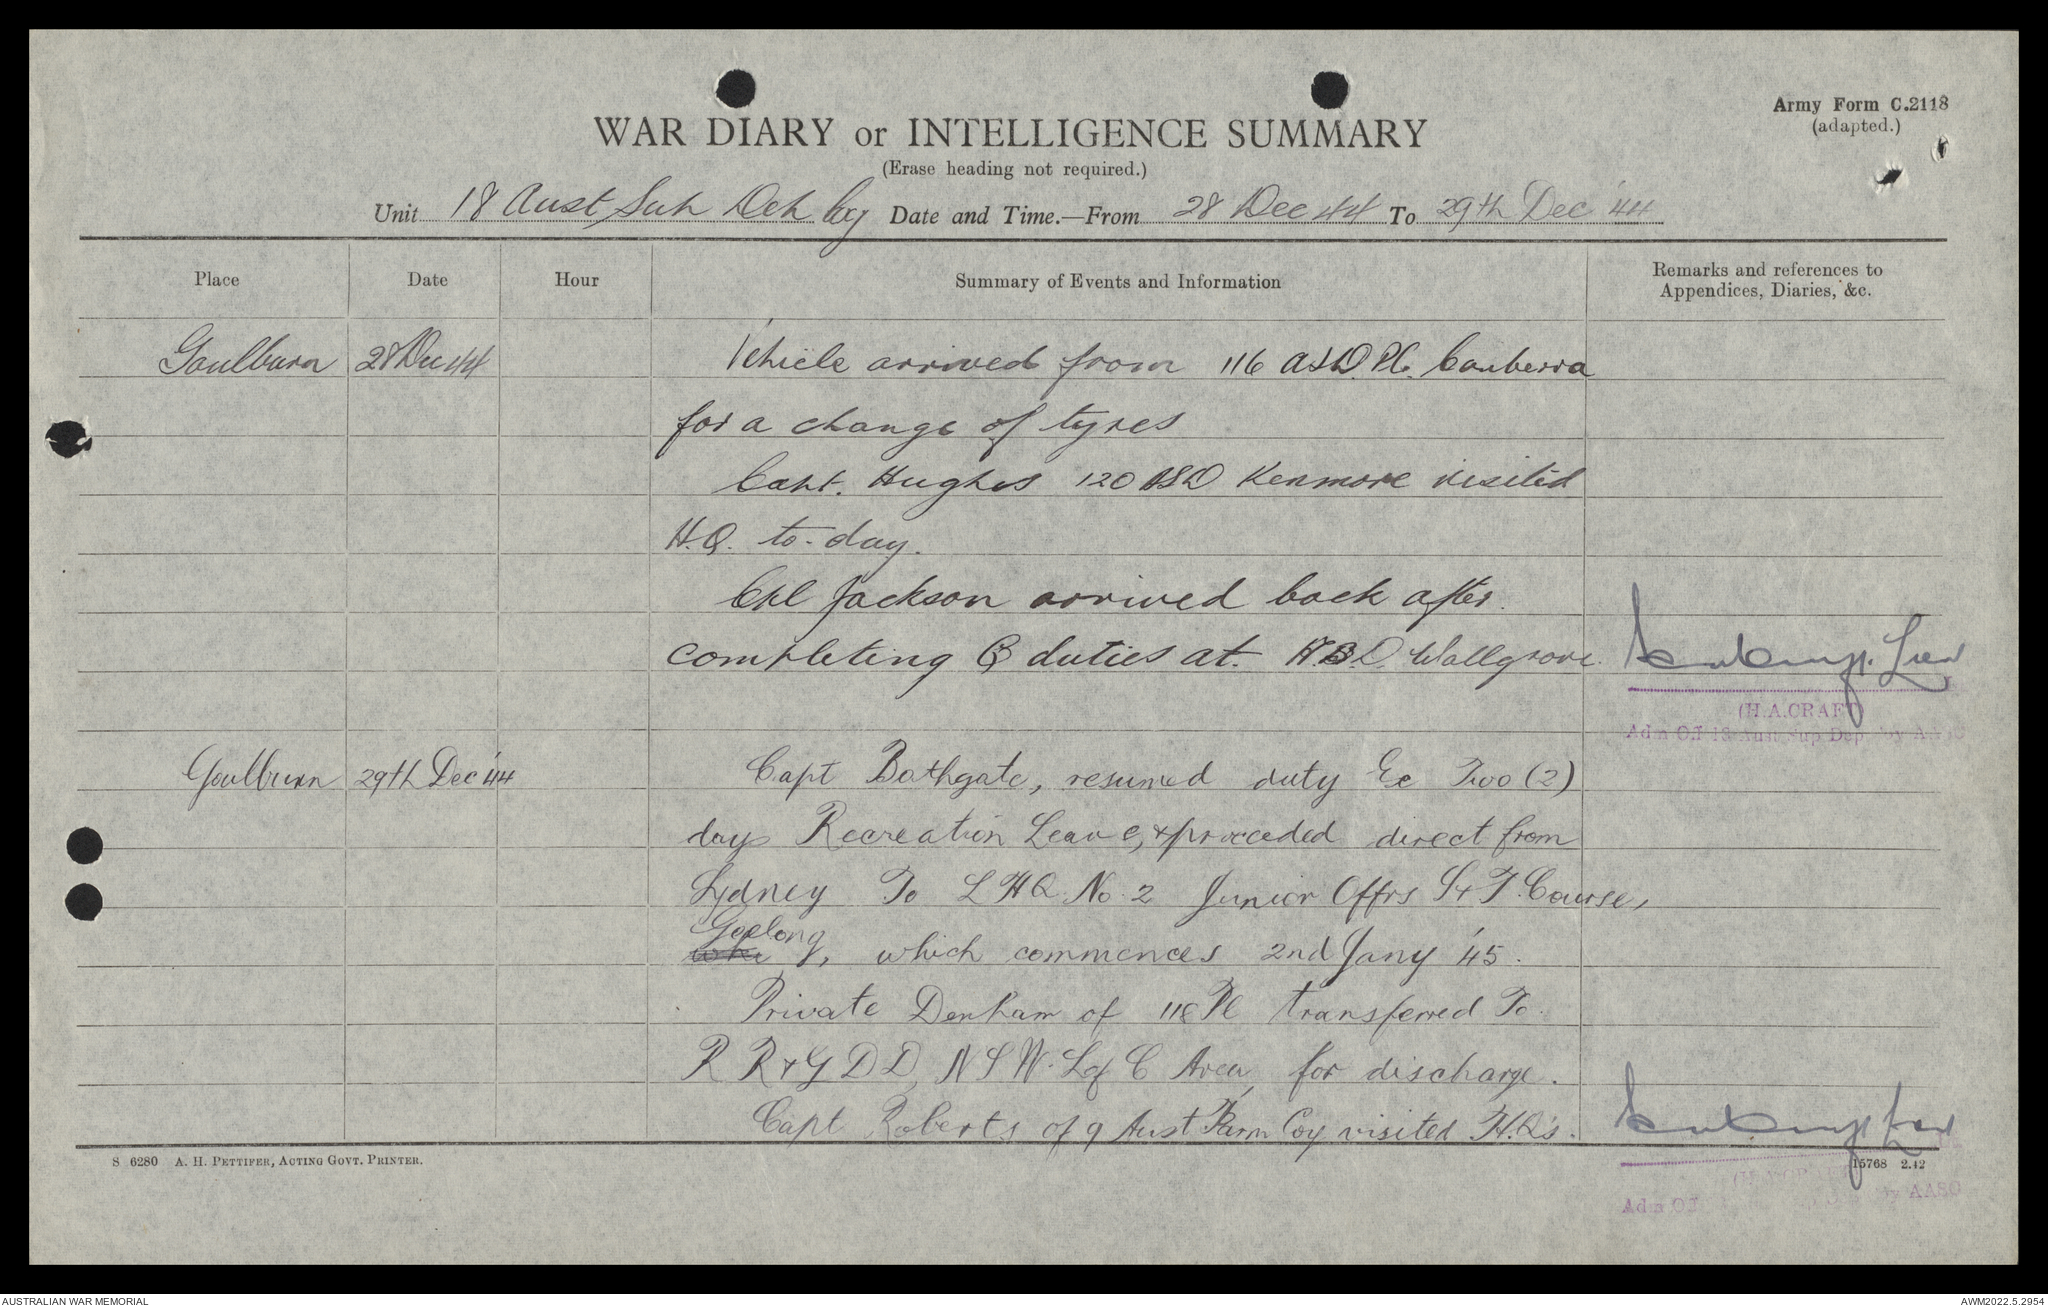 Army Form C.2118
(adapted.)
WAR DIARY or INTELLIGENCE SUMMARY
(Erase heading not required.)
Unit 18 Aust Sup Dep Coy Date and Time.—From 28 Dec 44 To 29th Dec '44
Place Date Hour Summary of Events and Information Remarks and references to
Appendices, Diaries, &c.
Goulburn 28 Dec 44 Vehicle arrived from 116 ASD. Pl. Canberra
for a change of tyres
Capt. Hughes 120 ASD Kenmore visited
H.Q. to-day.
Cpl Jackson arrived back after
completing Q duties at. A.B.D. Wallgrove.
(H.A.CRAFT)
Adm OI 18 Aust Sup Dep Coy AASC
Goulburn 29th Dec '44 Capt Bathgate, resumed duty Ex Two (2)
days Recreation Leave, & proceeded direct from
Sydney To LHQ. No. 2 Junior Offrs S & T. Course,
Geelong, which commences 2nd Jany '45.
Private Denham of 118 Pl transferred To
R R & G D D, NSW. L of C Area, for discharge.
Capt Roberts of 9 Aust Farm Coy visited H.Q's.
S 6280 A. H. PETTIFER, ACTING GOVT. PRINTER.
15768 2.42
Adm OI
Coy AASC
AUSTRALIAN WAR MEMORIAL
AWM2022.5.2954